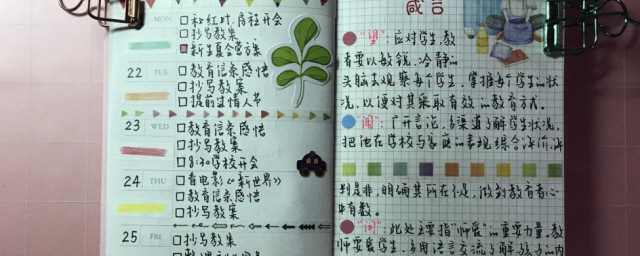 MON
□和红叶、房程开会
□抄写教案
新生夏令营方案
22 TUE
□教育信条感悟
□抄写教案
□提前过情人节
23 WED
□教育信条感悟
□抄写教案
□8:30学校开会
24 THU
□看电影《新世界》
□教育信条感悟
□抄写教案
25 FRI
□抄写教案
感言
"望":应对学生,教
者要以敏锐、冷静的
头脑去观察每个学生,掌握每个学生的状
况,以便对其采取有效的教育方式。
"闻":广开言论,多渠道了解学生状况,
把他在学校与家庭的表现综合评价,评
判是非,明确其所在不足,做到教育者心
中有数。
"问":此处主要指"师爱"的重要力量,教
师要爱学生,多用语言交流了解孩子的内